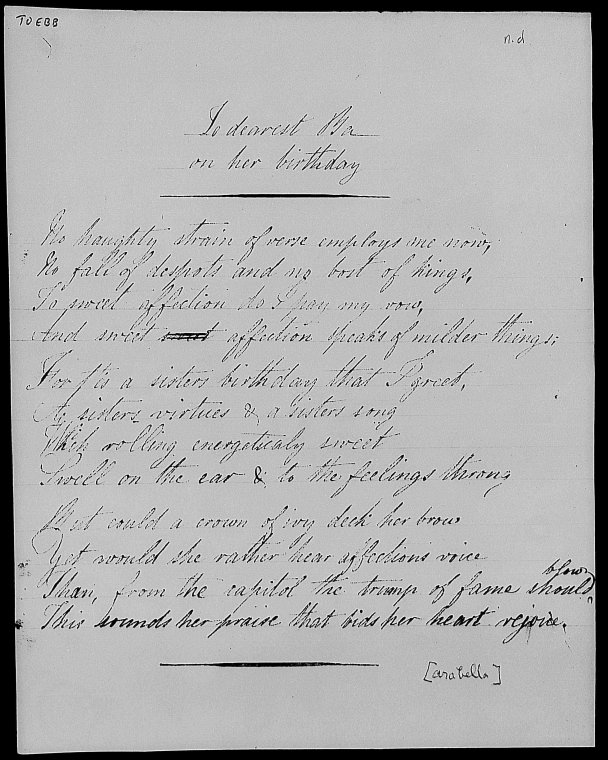 TO EBB
n.d
To dearest Ba
on her birthday
No haughty strain of verse employs me now,
No fall of despots and no bost of kings,
To sweet affection do I pay my vow,
And sweet sweet affection speaks of milder things;
For t'is a sisters birthday that I greet,
A sisters virtues & a sisters song
Which rolling energeticaly sweet
Swell on the ear & to the feelings throng
But could a crown of ivy deck her brow
Yet would she rather hear affections voice
Than, from the capitol the trump of fame should blow,
This sounds her praise that bids her heart rejoice.
[Arabella]